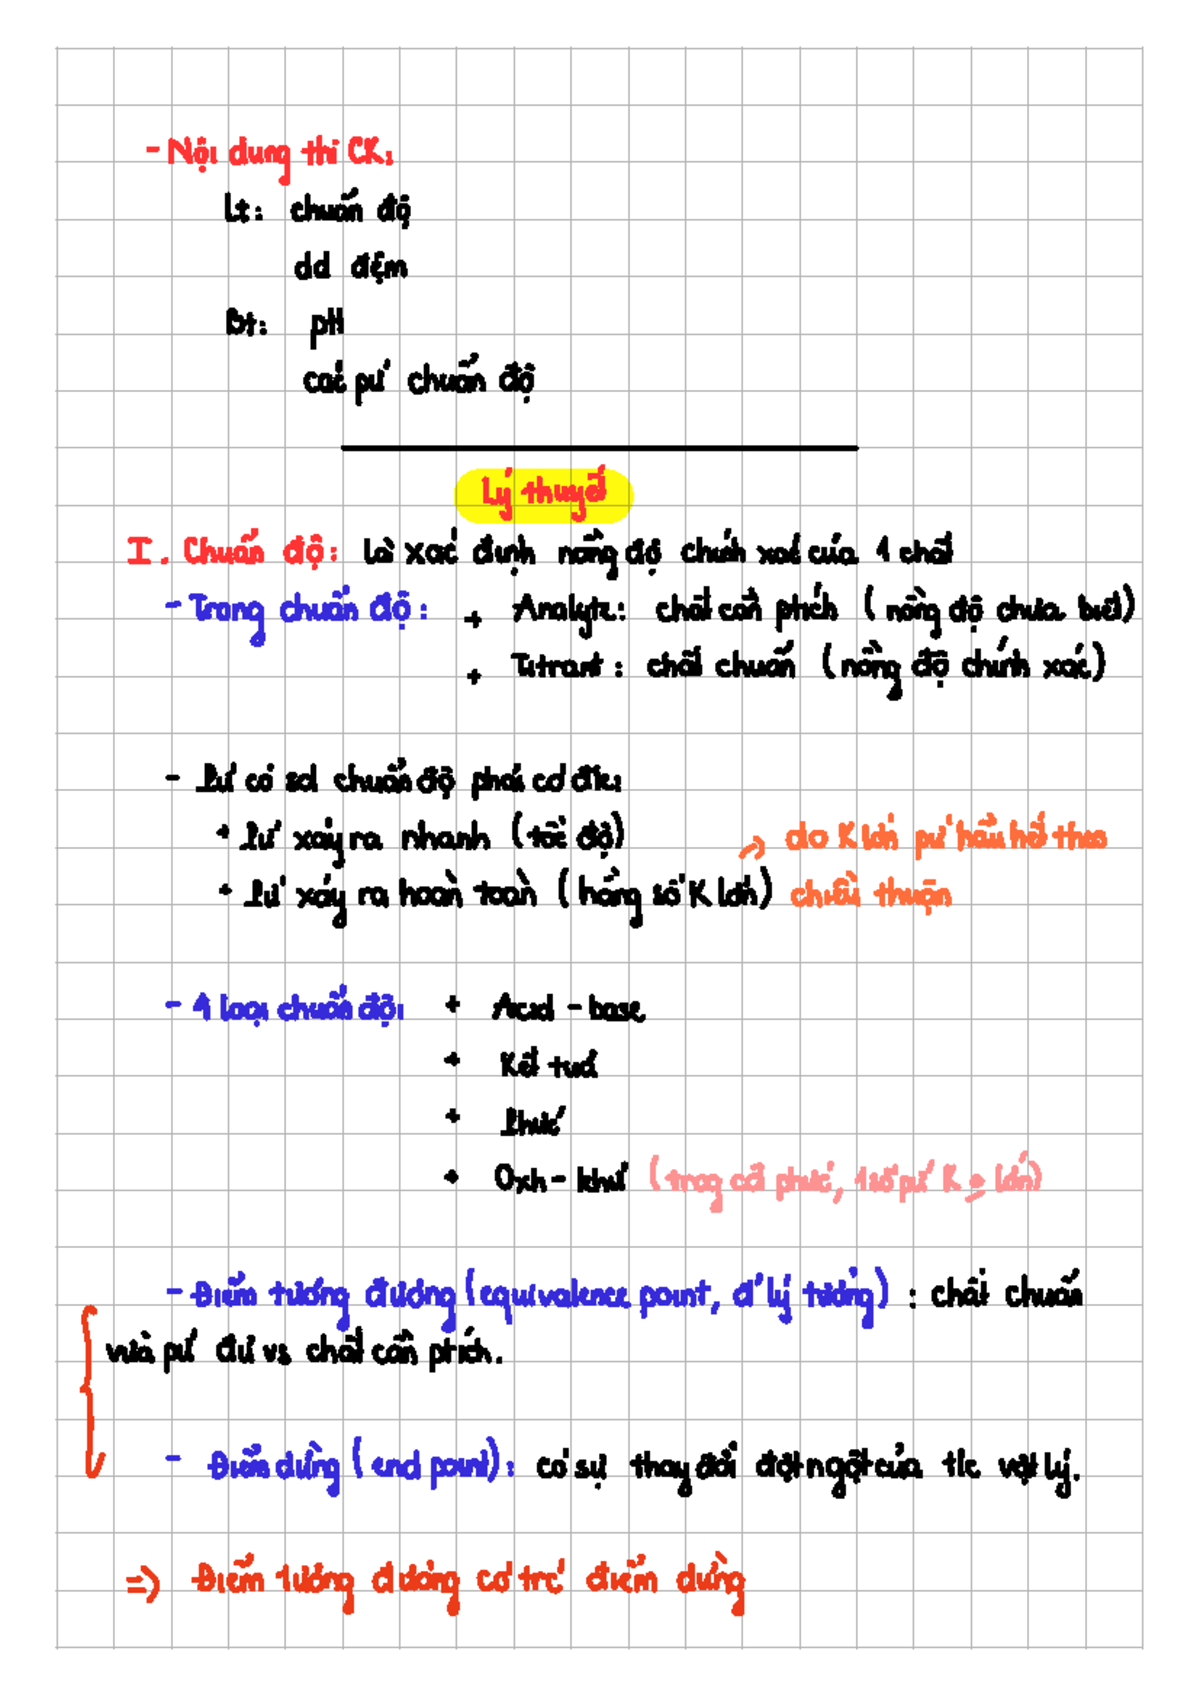 - Nội dung thi CK:
Lt: chuẩn độ
dd đệm
Bt: pH
các pứ chuẩn độ
Lý thuyết
I. Chuẩn độ: là xác định nồng độ chính xác của 1 chất
- Trong chuẩn độ: + Analyte: chất cần ptích (nồng độ chưa biết)
+ Titrant: chất chuẩn (nồng độ chính xác)
- Pứ có sd chuẩn độ phải có đk:
+ Pứ xảy ra nhanh (tốc độ)
do K lớn pứ hầu hết theo
+ Pứ xảy ra hoàn toàn (hằng số K lớn) chiều thuận
- 4 loại chuẩn độ: + Acid - base
+ Kết tuả
+ Phức
+ Oxh - khử (trog cái phức, 1 số pứ K lớn)
- Điểm tương đương (equivalence point, đ' lý tưởng) : chất chuẩn
vừa pứ đủ vs chất cần ptích.
- Điểm dừng (end point): có sự thay đổi đột ngột của t/c vật lý.
=> Điểm tương đương có trc điểm dừng